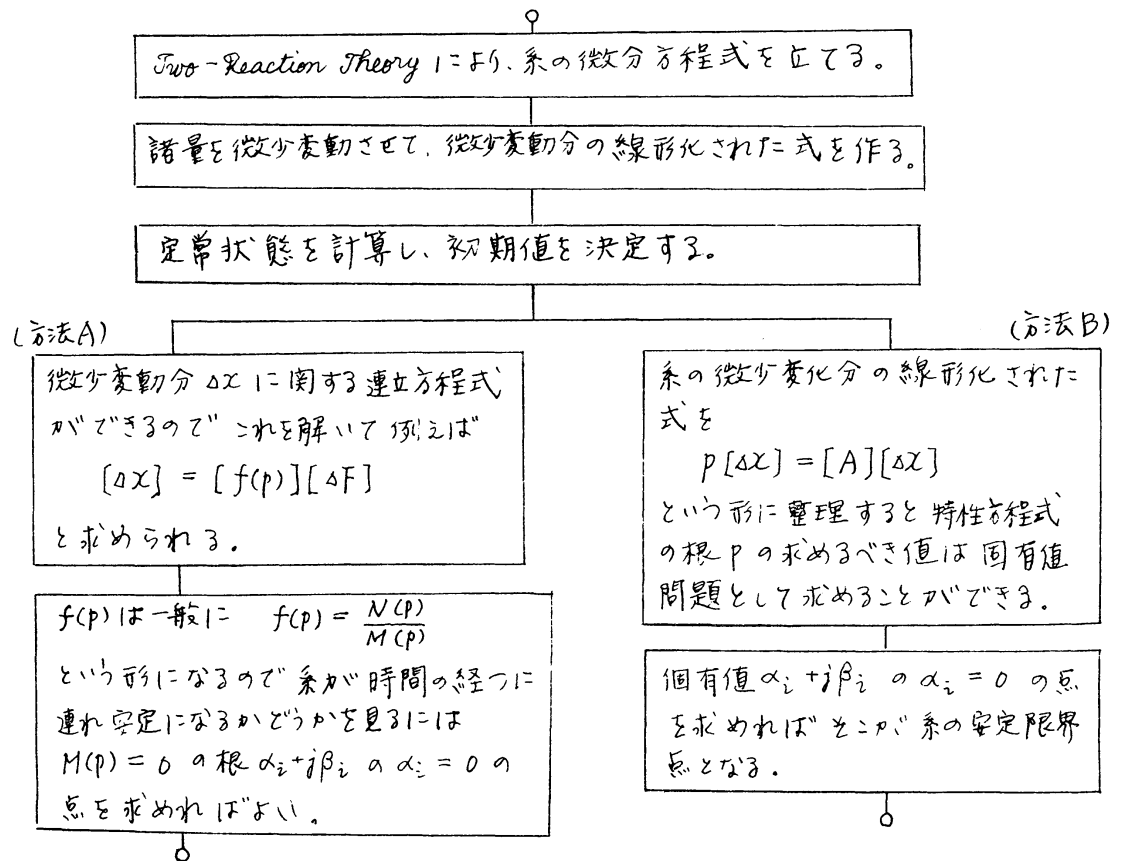 Two-Reaction Theory により、系の微分方程式を立てる。
諸量を微少変動させて、微少変動分の線形化された式を作る。
定常状態を計算し、初期値を決定する。
(方法A)
微少変動分 Δx に関する連立方程式
ができるので これを解いて 例えば
[Δx] = [f(p)][ΔF]
と求められる。
f(p)は一般に f(p) = N(p)/M(p)
という形になるので 系が時間の経つに
連れ安定になるかどうかを見るには
M(p) = 0 の根 αi+jβi の αi = 0 の
点を求めればよい。
(方法B)
系の微少変化分の線形化された
式を
p[Δx] = [A][Δx]
という形に整理すると 特性方程式
の根 p の求めるべき値は 固有値
問題として求めることができる。
個有値 αi+jβi の αi = 0 の点
を求めれば そこが系の安定限界
点となる。